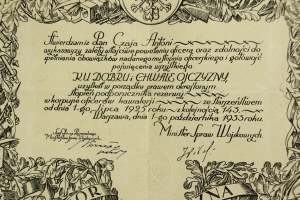 Stwierdzam że Pan Czaja Antoni
wykazawszy zalety właściwe powołaniu oficera oraz zdolności do
spełniania obowiązków nadanego mu stopnia oficerskiego i gotowość
poświęcenia wszystkiego
KU DOBRU i CHWALE OJCZYZNY
uzyskał w porządku prawem określonym
stopień podporucznika rezerwy
w korpusie oficerów kawalerji ze starszeństwem
od dnia 1-go lipca 1925 roku z kolejnością 143.
Warszawa, dnia 1-go października 1933 roku.
Minister Spraw Wojskowych
NA